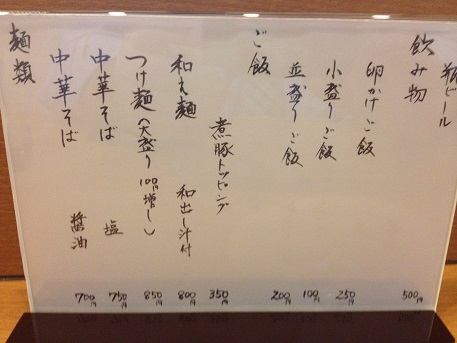 麺類
中華そば 醤油 700円
中華そば 塩 750円
つけ麺(大盛り100円増し) 850円
和え麺 和出し汁付 800円
煮豚トッピング 350円
ご飯
並盛りご飯 200円
小盛りご飯 100円
卵かけご飯 250円
飲み物
瓶ビール 500円